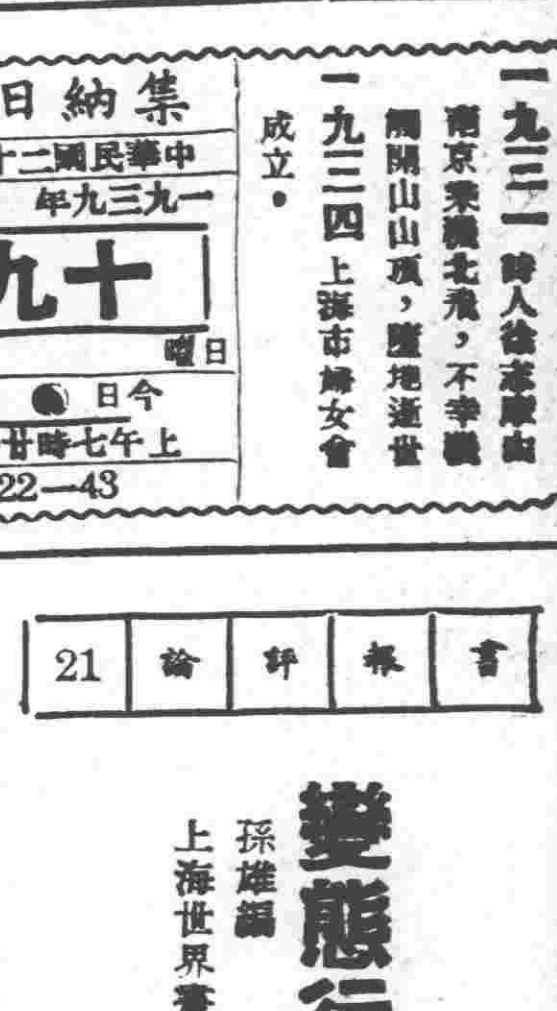 一九三一 詩人徐志摩由
南京乘機北飛，不幸機
觸開山山頂，墮地逝世
一九三四 上海市婦女會
成立。
集納日
中華民國二十
一九三九年
十九
日曜
今日
上午七時廿
22—43
書報評論 21
變態行
孫雄編
上海世界書